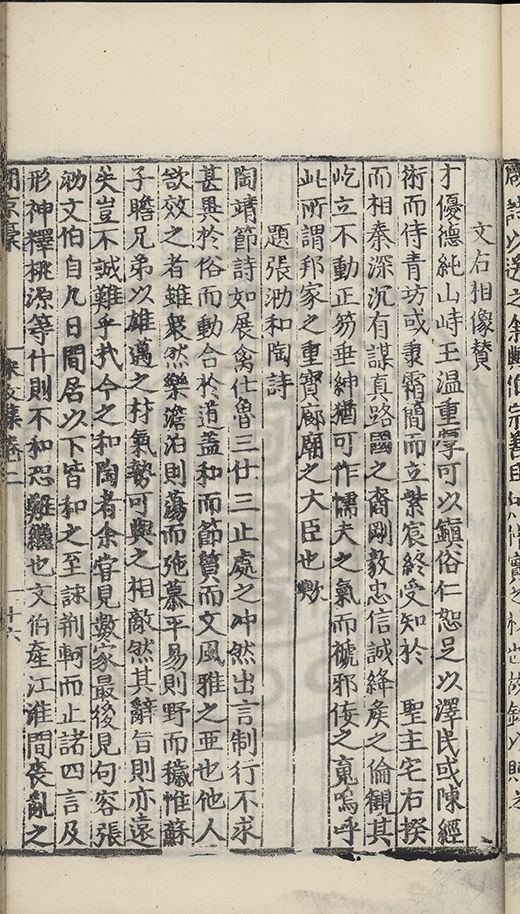 文右相像贊
才優德純山峙玉温重厚可以鎮俗仁恕足以澤民或陳經
術而侍青坊或秉霜簡而立紫宸終受知於 聖主宅右揆
而相秦深沉有謀真路國之裔剛毅忠信誠絳侯之倫觀其
屹立不動正笏垂紳猶可作懦夫之氣而褫邪佞之䰟嗚呼
此所謂邦家之重寶廊廟之大臣也歟
題張泐和陶詩
陶靖節詩如展禽仕魯三仕三止處之冲然出言制行不求
甚異於俗而動合於道盖和而節質而文風雅之亞也他人
欲效之者雖衆然樂澹泊則蕩而弛慕平易則野而穢惟蘇
子瞻兄弟以雄邁之材氣勢可與之相敵然其辭旨則亦遠
矣豈不誠難乎哉今之和陶者余嘗見數家最後見句容張
泐文伯自九日閒居以下皆和之至詠荆軻而止諸四言及
形神釋桃源等什則不和恐難繼也文伯産江淮間喪亂之